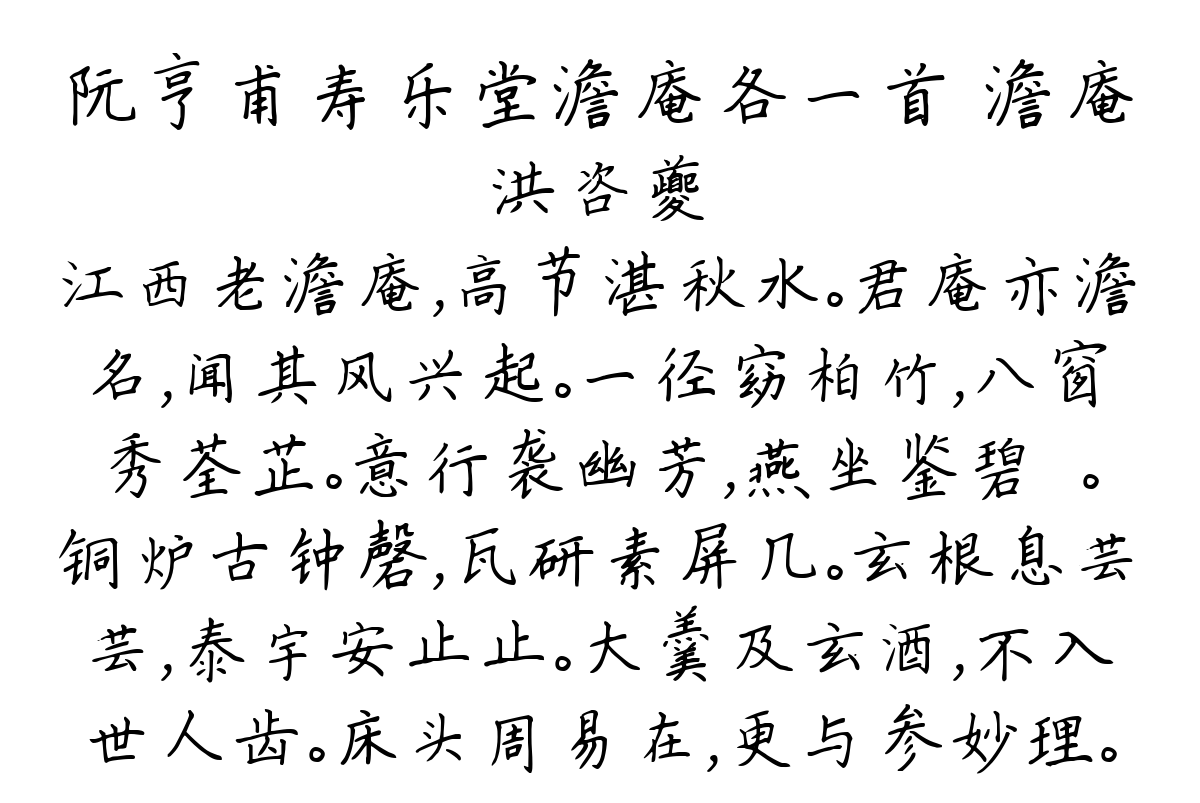 阮亨甫寿乐堂澹庵各一首 澹庵
洪咨夔
江西老澹庵,高节湛秋水。君庵亦澹
名,闻其风兴起。一径窈柏竹,八窗
秀荃芷。意行袭幽芳,燕坐鉴碧 。
铜炉古钟磬,瓦研素屏几。玄根息芸
芸,泰宇安止止。大羹及玄酒,不入
世人齿。床头周易在,更与参妙理。